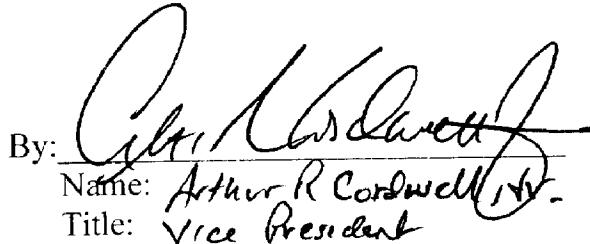 By:
Name: Arthur R Cordwell, Jr.
Title: Vice President